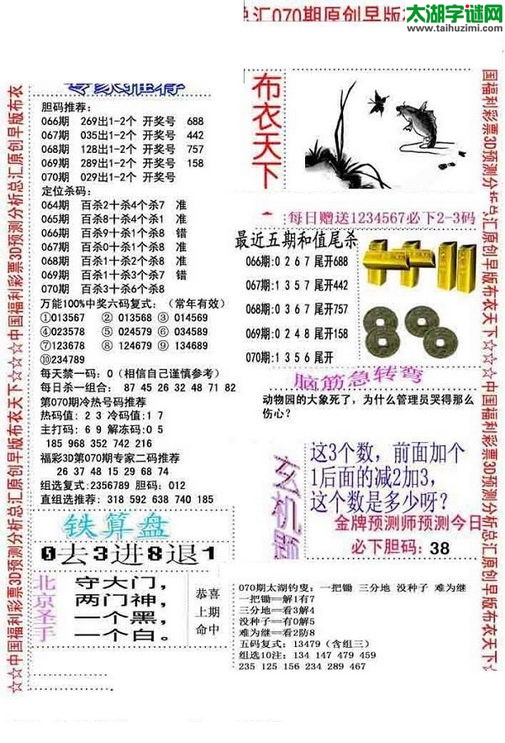 太湖字谜网
www.taihuzimi.com
总汇070期原创早版布
布衣天下
胆码推荐:
066期 269出1-2个 开奖号 688
067期 035出1-2个 开奖号 442
068期 128出1-2个 开奖号 757
069期 289出1-2个 开奖号 158
070期 029出1-2个 开奖号
定位杀码:
064期 百杀2十杀4个杀7 准
065期 百杀0十杀4个杀1 准
066期 百杀9十杀1个杀8 错
067期 百杀0十杀1个杀9 准
068期 百杀2十杀7个杀8 准
069期 百杀1十杀3个杀7 错
070期 百杀3十杀6个杀8
万能100%中奖六码复式: (常年有效)
①013567 ② 013568 ③ 014569
④023578 ⑤ 024579 ⑥ 034689
⑦123678 ⑧ 124679 ⑨ 134689
⑩234789
每天禁一码: 0 (相信自己谨慎参考)
每日杀一组合: 87 45 26 32 48 71 82
第070期冷热号码推荐
热码值: 2 3 冷码值: 1 7
主打码: 6 9 解冻码: 0 5
185 968 352 742 216
福彩3D第070期专家二码推荐
26 37 48 15 29 68 74
组选复式: 2356789 胆码: 012
直组选推荐: 318 592 638 740 185
每日赠送1234567必下2-3码
最近五期和值尾杀
066期:0 2 6 7 尾开688
067期:1 3 5 7 尾开442
068期:0 3 6 7 尾开757
069期:0 2 4 8 尾开158
070期:1 3 5 6 尾开
脑筋急转弯
动物园的大象死了,为什么管理员哭得那么
伤心?
玄机题
这3个数,前面加个
1后面的减2加3,
这个数是多少呀?
金牌预测师预测今日
必下胆码: 38
铁算盘
0去3进8退1
北京圣手
守大门,
两门神,
一个黑,
一个白。
恭喜
上期
命中
070期太湖钓叟: 一把锄 三分地 没种子 难为继
一把锄==解1有7
三分地==看3解4
没种子==有0解5
难为继==看2防8
五码复式: 13479 (含组三)
组选10注: 134 147 479 459
235 125 156 234 289 467
☆☆中国福利彩票3D预测分析总汇原创早版布衣天下☆☆☆中国福利彩票3D预测分析总汇原创早版布衣
国福利彩票3D预测分析总汇原创早版布衣天下☆☆☆中国福利彩票3D预测分析总汇原创早版布衣天下☆☆